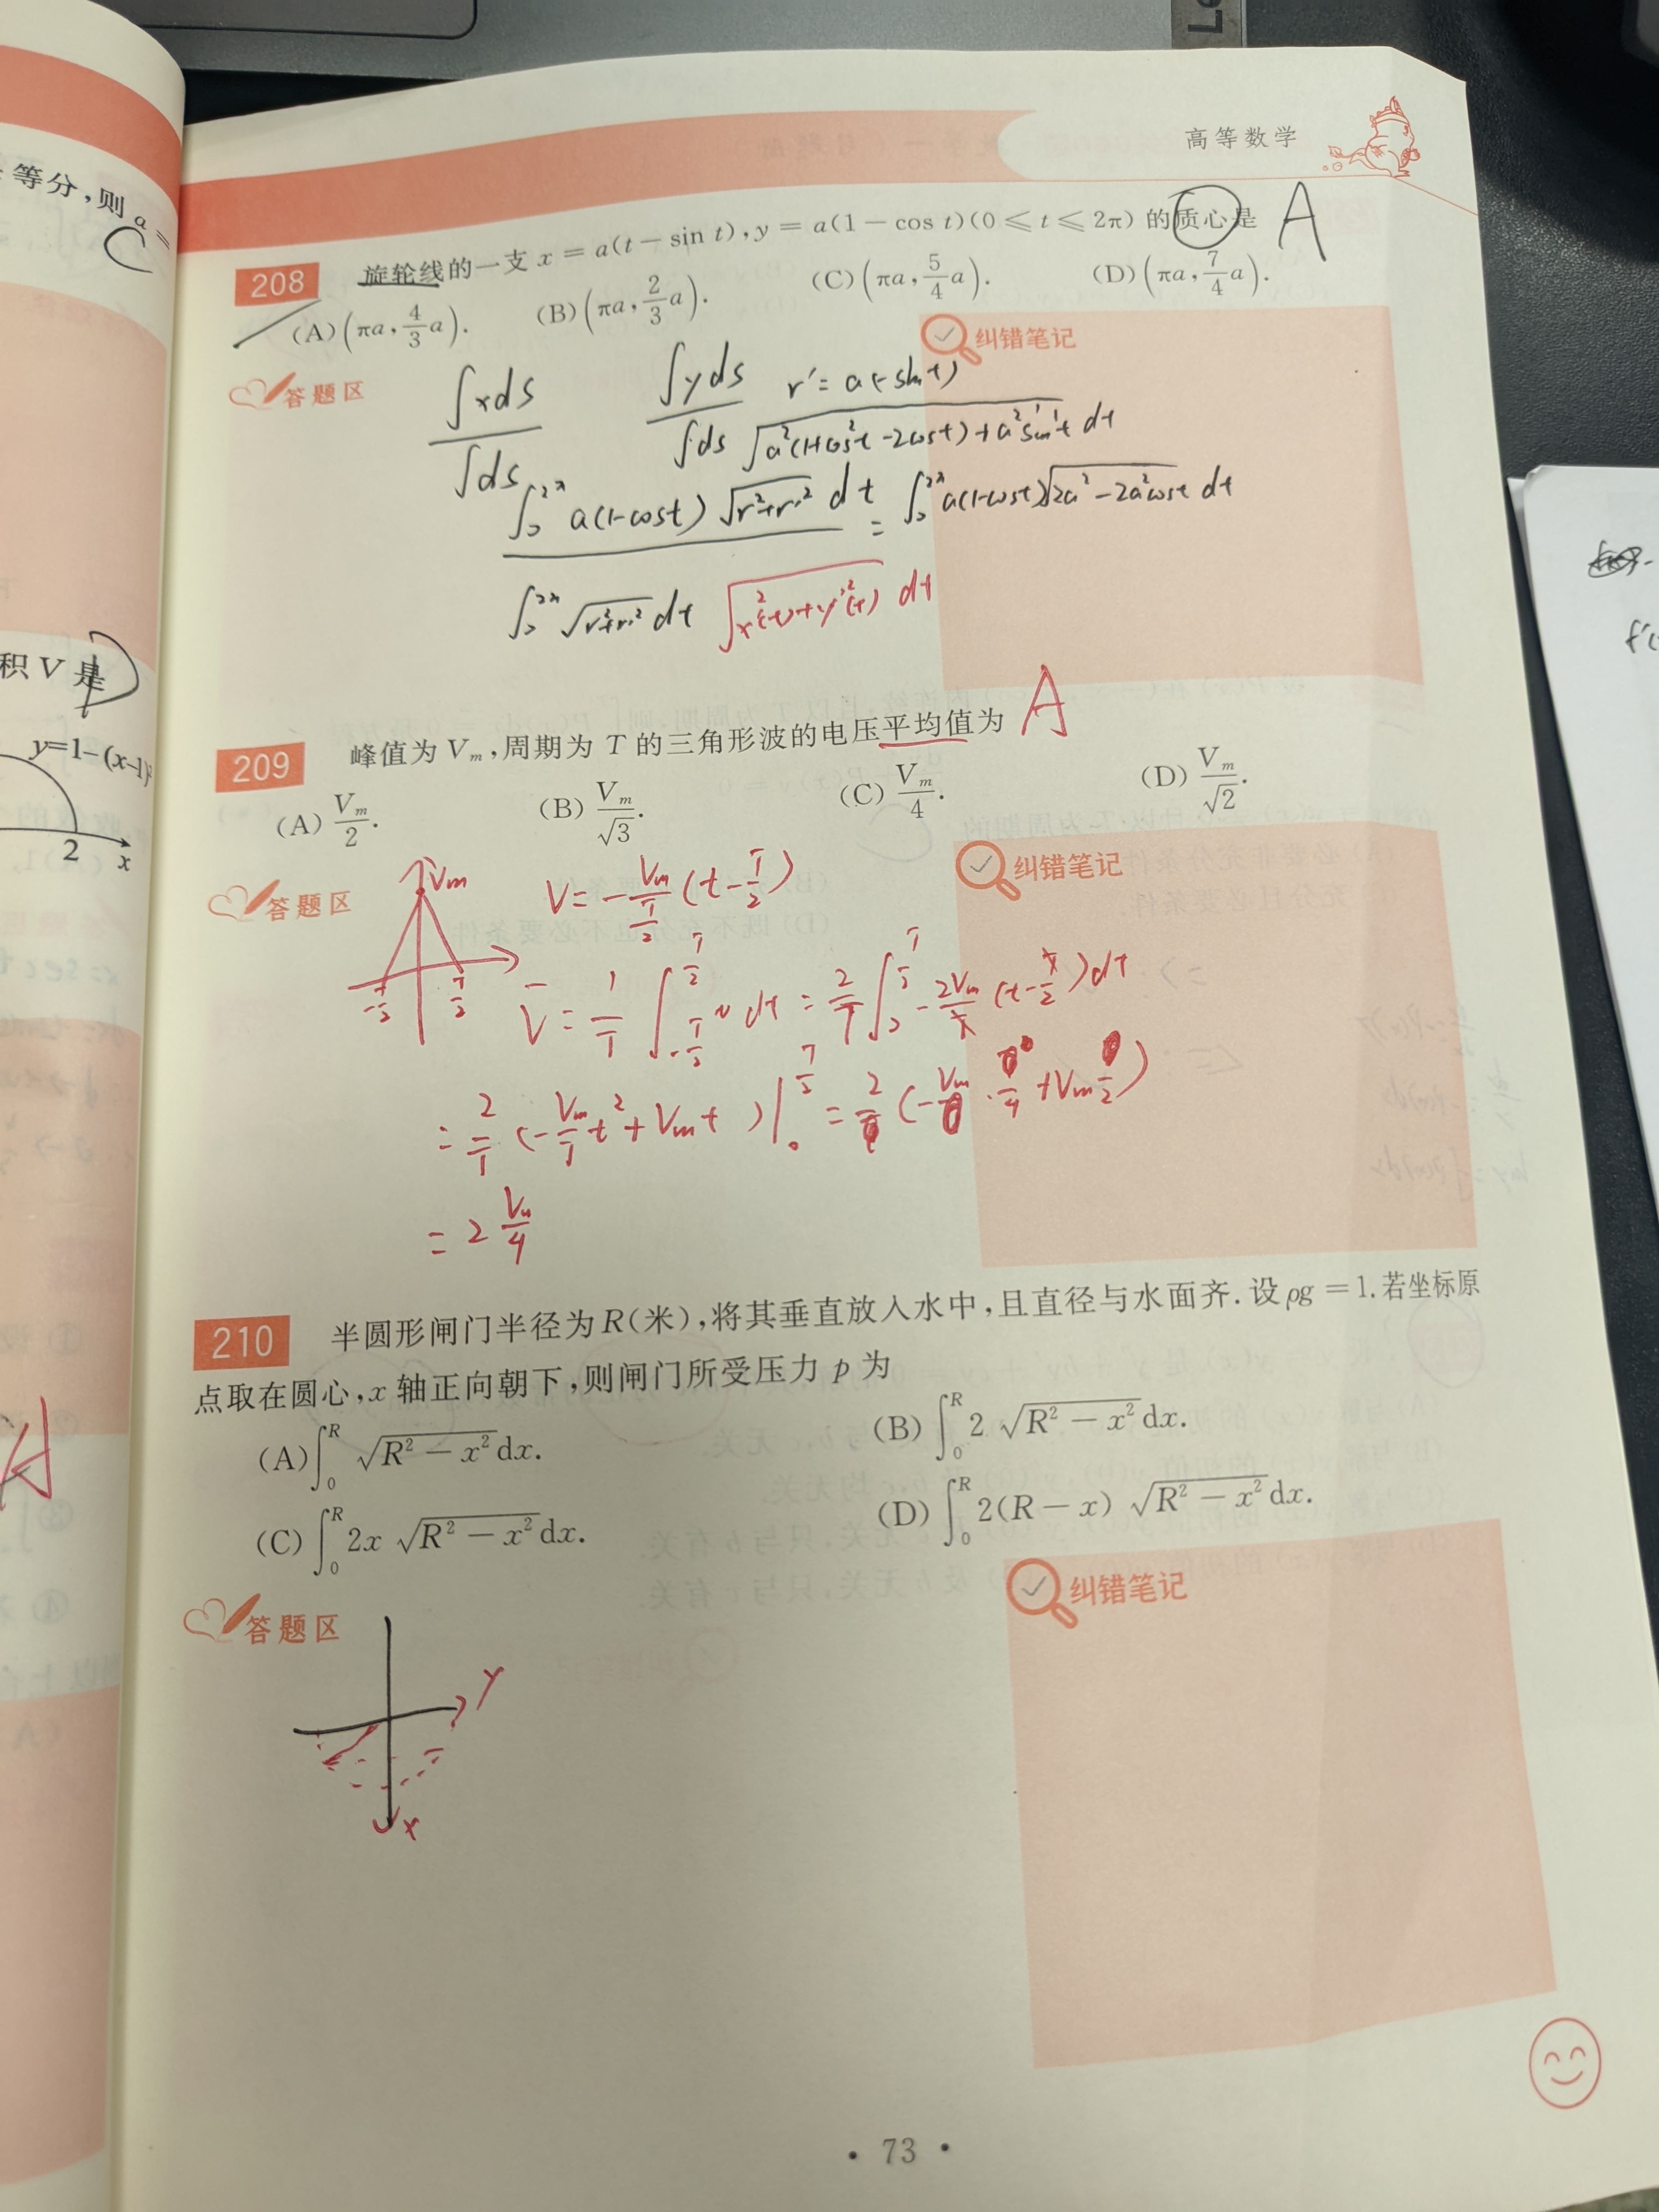 Le
等分,则 a =
C
积 V 是
D
y=1-(x-1)²
2
x
A
高等数学
208 旋轮线的一支 x = a(t - sin t), y = a(1 - cos t)(0 ≤ t ≤ 2π) 的质心是 A
(A) (πa, 4/3 a). (B) (πa, 2/3 a). (C) (πa, 5/4 a). (D) (πa, 7/4 a).
答题区
纠错笔记
∫xds / ∫ds ∫yds / ∫ds r' = a(-sin t)
√(a²(1+cos²t-2cost)+a²sin²t) dt
∫₀^2π a(1-cost) √(r²+r'²) dt / ∫₀^2π √(r²+r'²) dt = ∫₀^2π a(1-cost)√(2a²-2a²cost) dt
√(x'²(t)+y'²(t)) dt
209 峰值为 Vₘ,周期为 T 的三角形波的电压平均值为 A
(A) Vₘ/2. (B) Vₘ/√3. (C) Vₘ/4. (D) Vₘ/√2.
答题区
纠错笔记
Vm
-T/2 T/2
V = -Vm/(T/2) (t - T/2)
V̄ = 1/T ∫_{-T/2}^{T/2} v dt = 2/T ∫₀^{T/2} -2Vm/T (t - T/2) dt
= 2/T (-Vm/T t² + Vm t)|₀^{T/2} = 2/T (-Vm/T · T²/4 + Vm T/2)
= 2 Vm/4
210 半圆形闸门半径为 R(米),将其垂直放入水中,且直径与水面齐. 设 ρg = 1. 若坐标原
点取在圆心, x 轴正向朝下,则闸门所受压力 p 为
(A) ∫₀^R √(R² - x²) dx. (B) ∫₀^R 2 √(R² - x²) dx.
(C) ∫₀^R 2x √(R² - x²) dx. (D) ∫₀^R 2(R - x) √(R² - x²) dx.
答题区
纠错笔记
y
x
· 73 ·